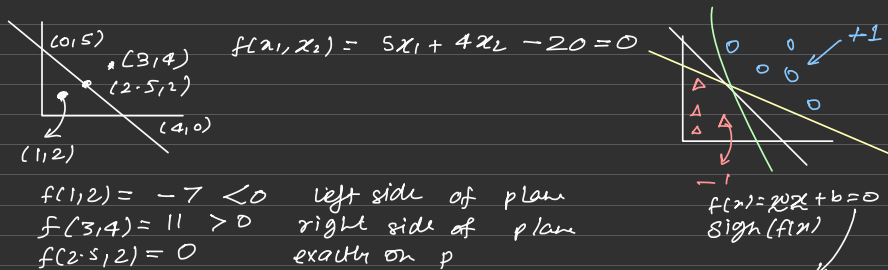 (0,5)
f(x1, x2) = 5x1 + 4x2 - 20 = 0
+1
(3,4)
(2.5,2)
(4,0)
(1,2)
-1
f(1,2) = -7 <0 left side of plane
f(3,4) = 11 >0 right side of plane
f(2.5,2) = 0 exactly on p
f(x) = wx + b = 0
sign(f(x))